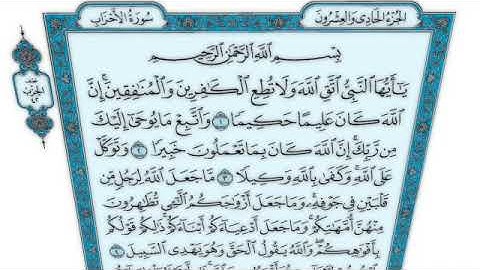 الجزء الحادي والعشرون
سورة الأحزاب
بِسْمِ اللَّهِ الرَّحْمَٰنِ الرَّحِيمِ
يَا أَيُّهَا النَّبِيُّ اتَّقِ اللَّهَ وَلَا تُطِعِ الْكَافِرِينَ وَالْمُنَافِقِينَ ۗ إِنَّ
اللَّهَ كَانَ عَلِيمًا حَكِيمًا ١ وَاتَّبِعْ مَا يُوحَىٰ إِلَيْكَ
مِن رَّبِّكَ ۚ إِنَّ اللَّهَ كَانَ بِمَا تَعْمَلُونَ خَبِيرًا ٢ وَتَوَكَّلْ
عَلَى اللَّهِ ۚ وَكَفَىٰ بِاللَّهِ وَكِيلًا ٣ مَّا جَعَلَ اللَّهُ لِرَجُلٍ مِّن
قَلْبَيْنِ فِي جَوْفِهِ ۚ وَمَا جَعَلَ أَزْوَاجَكُمُ اللَّائِي تُظَاهِرُونَ
مِنْهُنَّ أُمَّهَاتِكُمْ ۚ وَمَا جَعَلَ أَدْعِيَاءَكُمْ أَبْنَاءَكُمْ ۚ ذَٰلِكُمْ قَوْلُكُم
بِأَفْوَاهِكُمْ ۖ وَاللَّهُ يَقُولُ الْحَقَّ وَهُوَ يَهْدِي السَّبِيلَ ٤